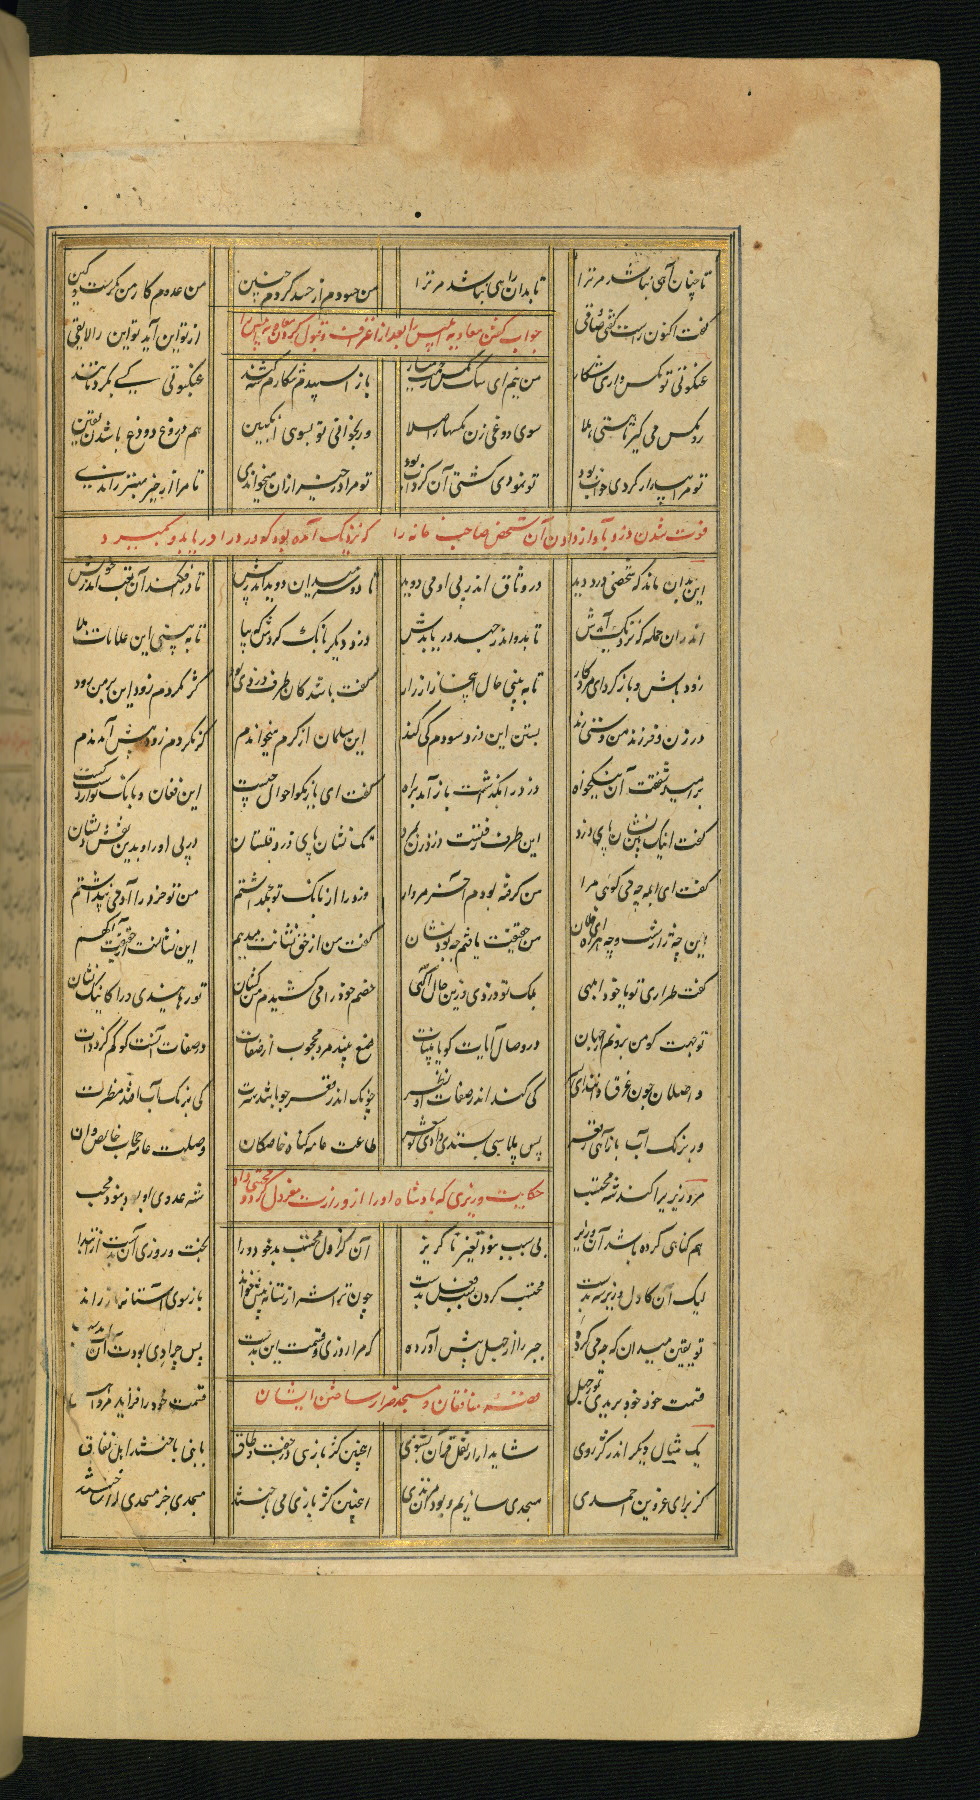 تا چنان آهی نباشد مر ترا تا بدان راهی نباشد مر ترا من حسودم از حسد کردم چنین من عدوم کار من مکرست و کین
گفت اکنون راست گفتی صادقی از تو این آید تو این را لایقی
جواب گفتن معاویه ابلیس را بعد از اعتراف و قبول کردن معاویه ابلیس را
عنکبوتی تو مگس داری شکار من نیم ای سگ مگس زحمت میار باز اسپیدم شکارم شه کند عنکبوتی کی بگرد ما تند
رو مگس می گیر تا هستی هلا سوی دوغی زن مگسها را صلا ور بخوانی تو بسوی انگبین هم دروغ و دوغ باشد آن یقین
تو مرا بیدار کردی خواب بود تو نمودی کشتی آن گرداب بود تو مرا در خیر از آن میخواندی تا مرا از خیر بهتر راندی
فوت شدن دزد بآواز دادن آن شخص صاحب خانه را که نزدیک آمده بود که دزد را دریابد و بگیرد
این بدان ماند که شخصی دزد دید در وثاق اندر پی او می دوید تا دو سه میدان دوید اندر پیش تا در افکند آن تعب اندر خویش
اندر آن حمله که نزدیک آمدش تا بدو اندر جهد دریابدش دزد دیگر بانگ کردش که بیا تا به بینی این علامات بلا
زود باش و باز گرد ای مرد کار تا به بینی حال اینجا زار زار گفت باشد کان طرف دزدی بود گر نگردم زود این بر من رود
در زن و فرزند من دستی زند بستن این دزد سودم کی کند این مسلمان از کرم میخواندم گر نگردم زود پیش آید ندم
بر امید شفقت آن نیکخواه دزد را بگذاشت باز آمد براه گفت ای یار نکو احوال چیست این فغان و بانگ تو از دست کیست
گفت اینک بین نشان پای دزد این طرف رفتست دزد زن بمزد نک نشان پای دزد قلتبان در پی او رو بدین نقش و نشان
گفت ای ابله چه می گوئی مرا من گرفته بودم آخر مر ورا دزد را از بانگ تو بگذاشتم من تو خر را آدمی پنداشتم
این چه ژاژست و چه هرزه ای فلان من حقیقت یافتم چه بود نشان گفت من از حق نشانت میدهم این نشانست از حقیقت آگهم
گفت طراری تو یا خود ابلهی بلک تو دزدی و زین حال آگهی خصم خود را می کشیدم من کشان تو رهانیدی ورا کاینک نشان
تو جهت گو من برونم از جهات در وصال آیات کو یا بینات صنع بیند مرد محجوب از صفات در صفات آنست کو گم کرد ذات
واصلان چون غرق ذاتند ای پسر کی کنند اندر صفات او نظر چونک اندر قعر جو باشد سرت کی برنگ آب افتد منظرت
ور برنگ آب باز آئی ز قعر پس پلاسی بستدی دادی تو شعر طاعت عامه گناه خاصگان وصلت عامه حجاب خاص دان
مر وزیری را کند شه محتسب شه عدوی او بود نبود محب
حکایت وزیری که پادشاه او را از وزارت معزول کرد و محتسبی داد
هم گناهی کرده باشد آن وزیر بی سبب نبود تغیر ناگزیر آن کز اول محتسب بد خود ورا بخت و روزی آن بدست از ابتدا
لیک آن کاول وزیر شه بدست محتسب کردن سبب فعل بدست چون ترا شه ز آستانه پیش خواند باز سوی آستانه باز راند
تو یقین میدان که جرمی کرده جبر را از جهل پیش آورده که مرا روزی و قسمت این بدست پس چرا دی بودت آن
قسمت خود خود بریدی تو ز جهل قسمت خود را فزاید مرد اهل
قصه منافقان و مسجد ضرار ساختن ایشان
یک مثال دیگر اندر کژروی شاید ار از نقل قرآن بشنوی اینچنین کژ بازیی در جفت و طاق با نبی می باختند اهل نفاق
کز برای عز دین احمدی مسجدی سازیم و بود آن مرتدی اینچنین کژ بازیی می باختند مسجدی جز مسجد او ساختند